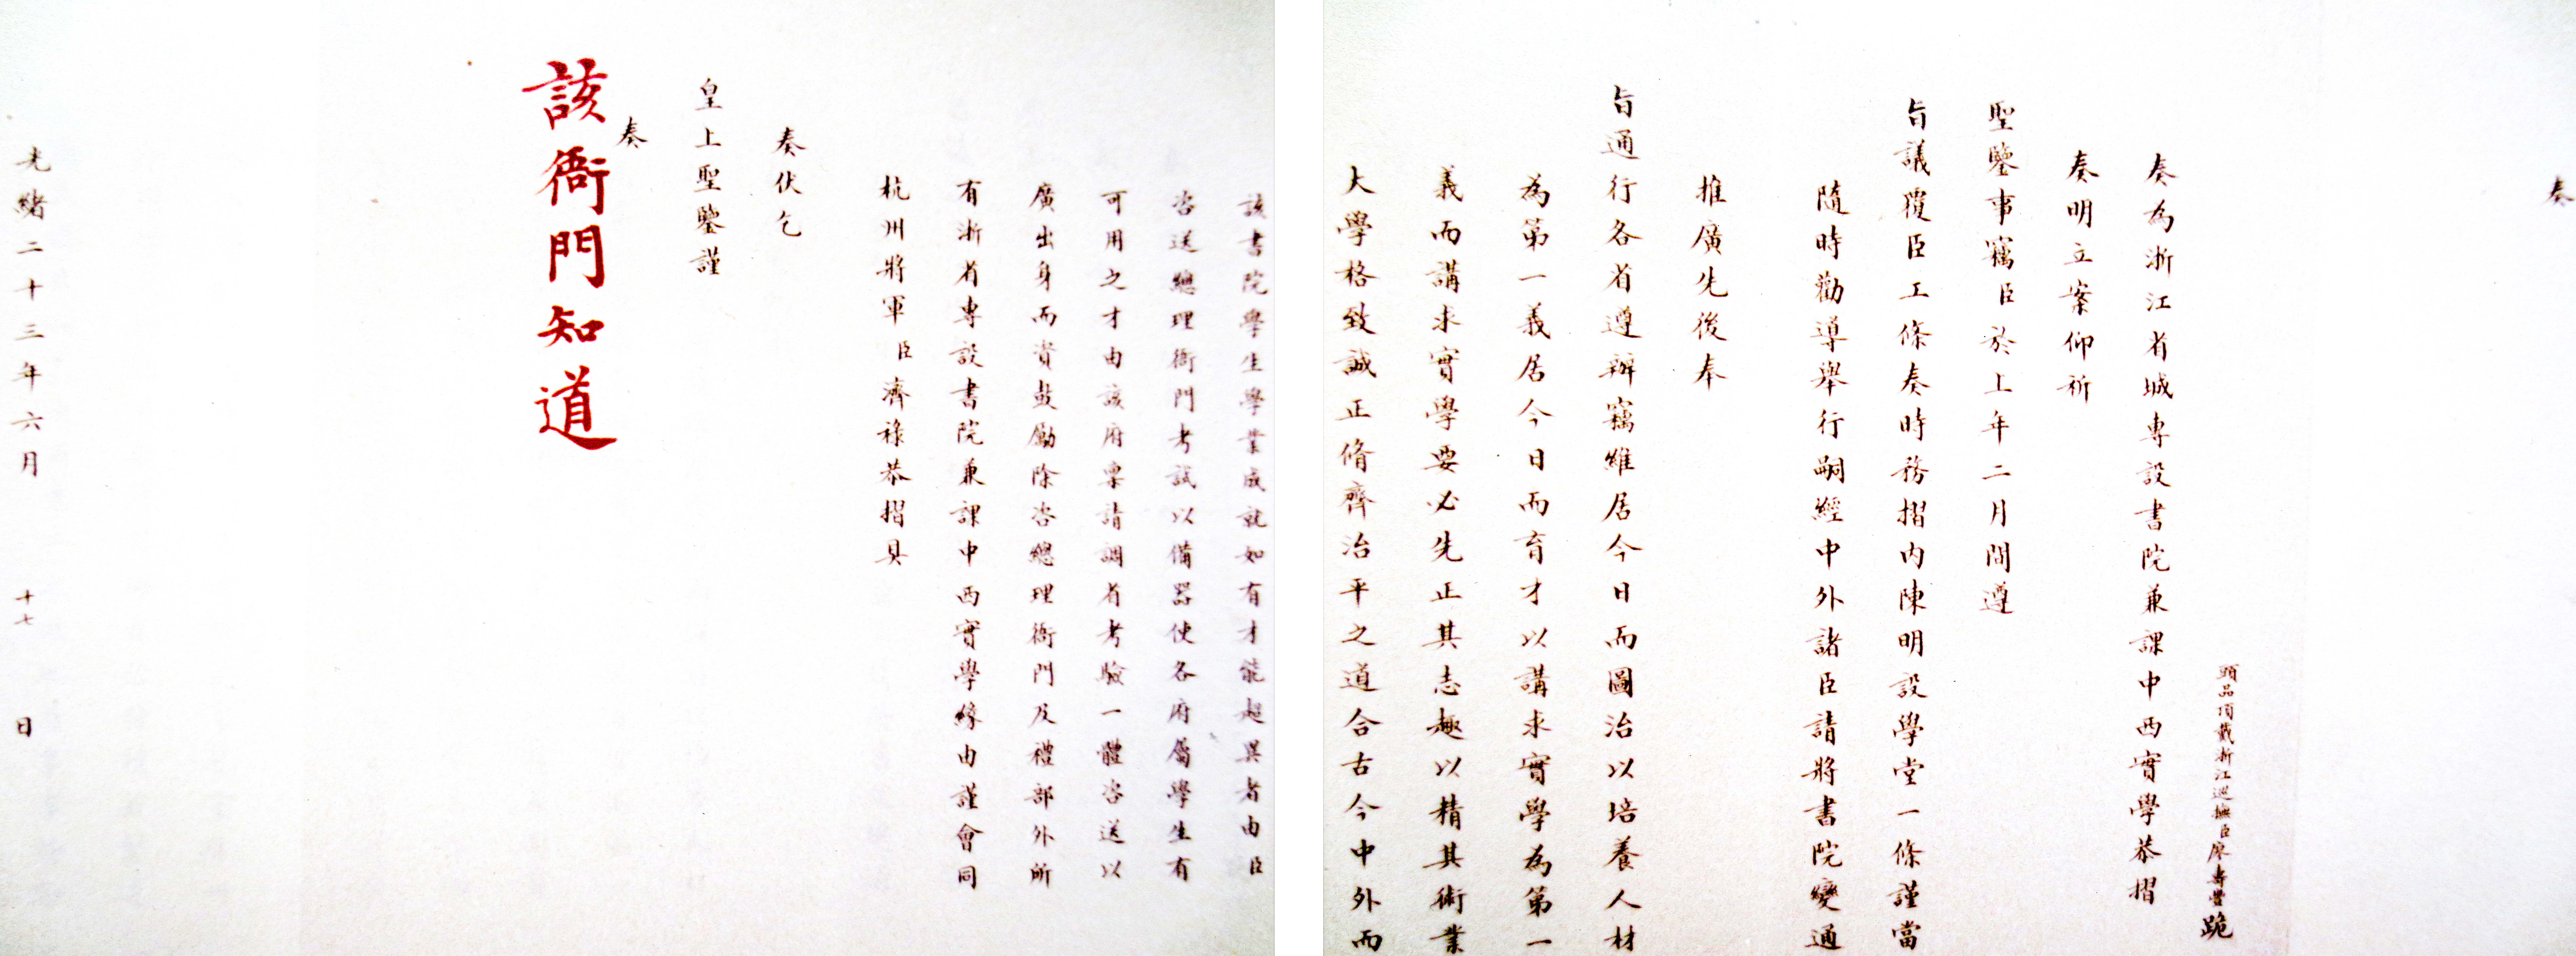 奏
頭品頂戴浙江巡撫臣廖壽豐跪
奏為浙江省城專設書院兼課中西實學恭摺
奏明立案仰祈
聖鑒事竊臣於上年二月間遵
旨議覆臣工條奏時務摺內陳明設學堂一條謹當
隨時勸導舉行嗣經中外諸臣請將書院變通
推廣先後奉
旨通行各省遵辦竊維居今日而圖治以培養人材
為第一義居今日而育才以講求實學為第一
義而講求實學要必先正其志趣以精其術業
大學格致誠正脩齊治平之道合古今中外而
該書院學生學業成就如有才能超異者由臣
咨送總理衙門考試以備器使各府屬學生有
可用之才由該府稟請調省考驗一體咨送以
廣出身而資鼓勵除咨總理衙門及禮部外所
有浙省專設書院兼課中西實學緣由謹會同
杭州將軍臣濟祿恭摺具
奏伏乞
皇上聖鑒謹
奏
該衙門知道
光緒二十三年六月十七日